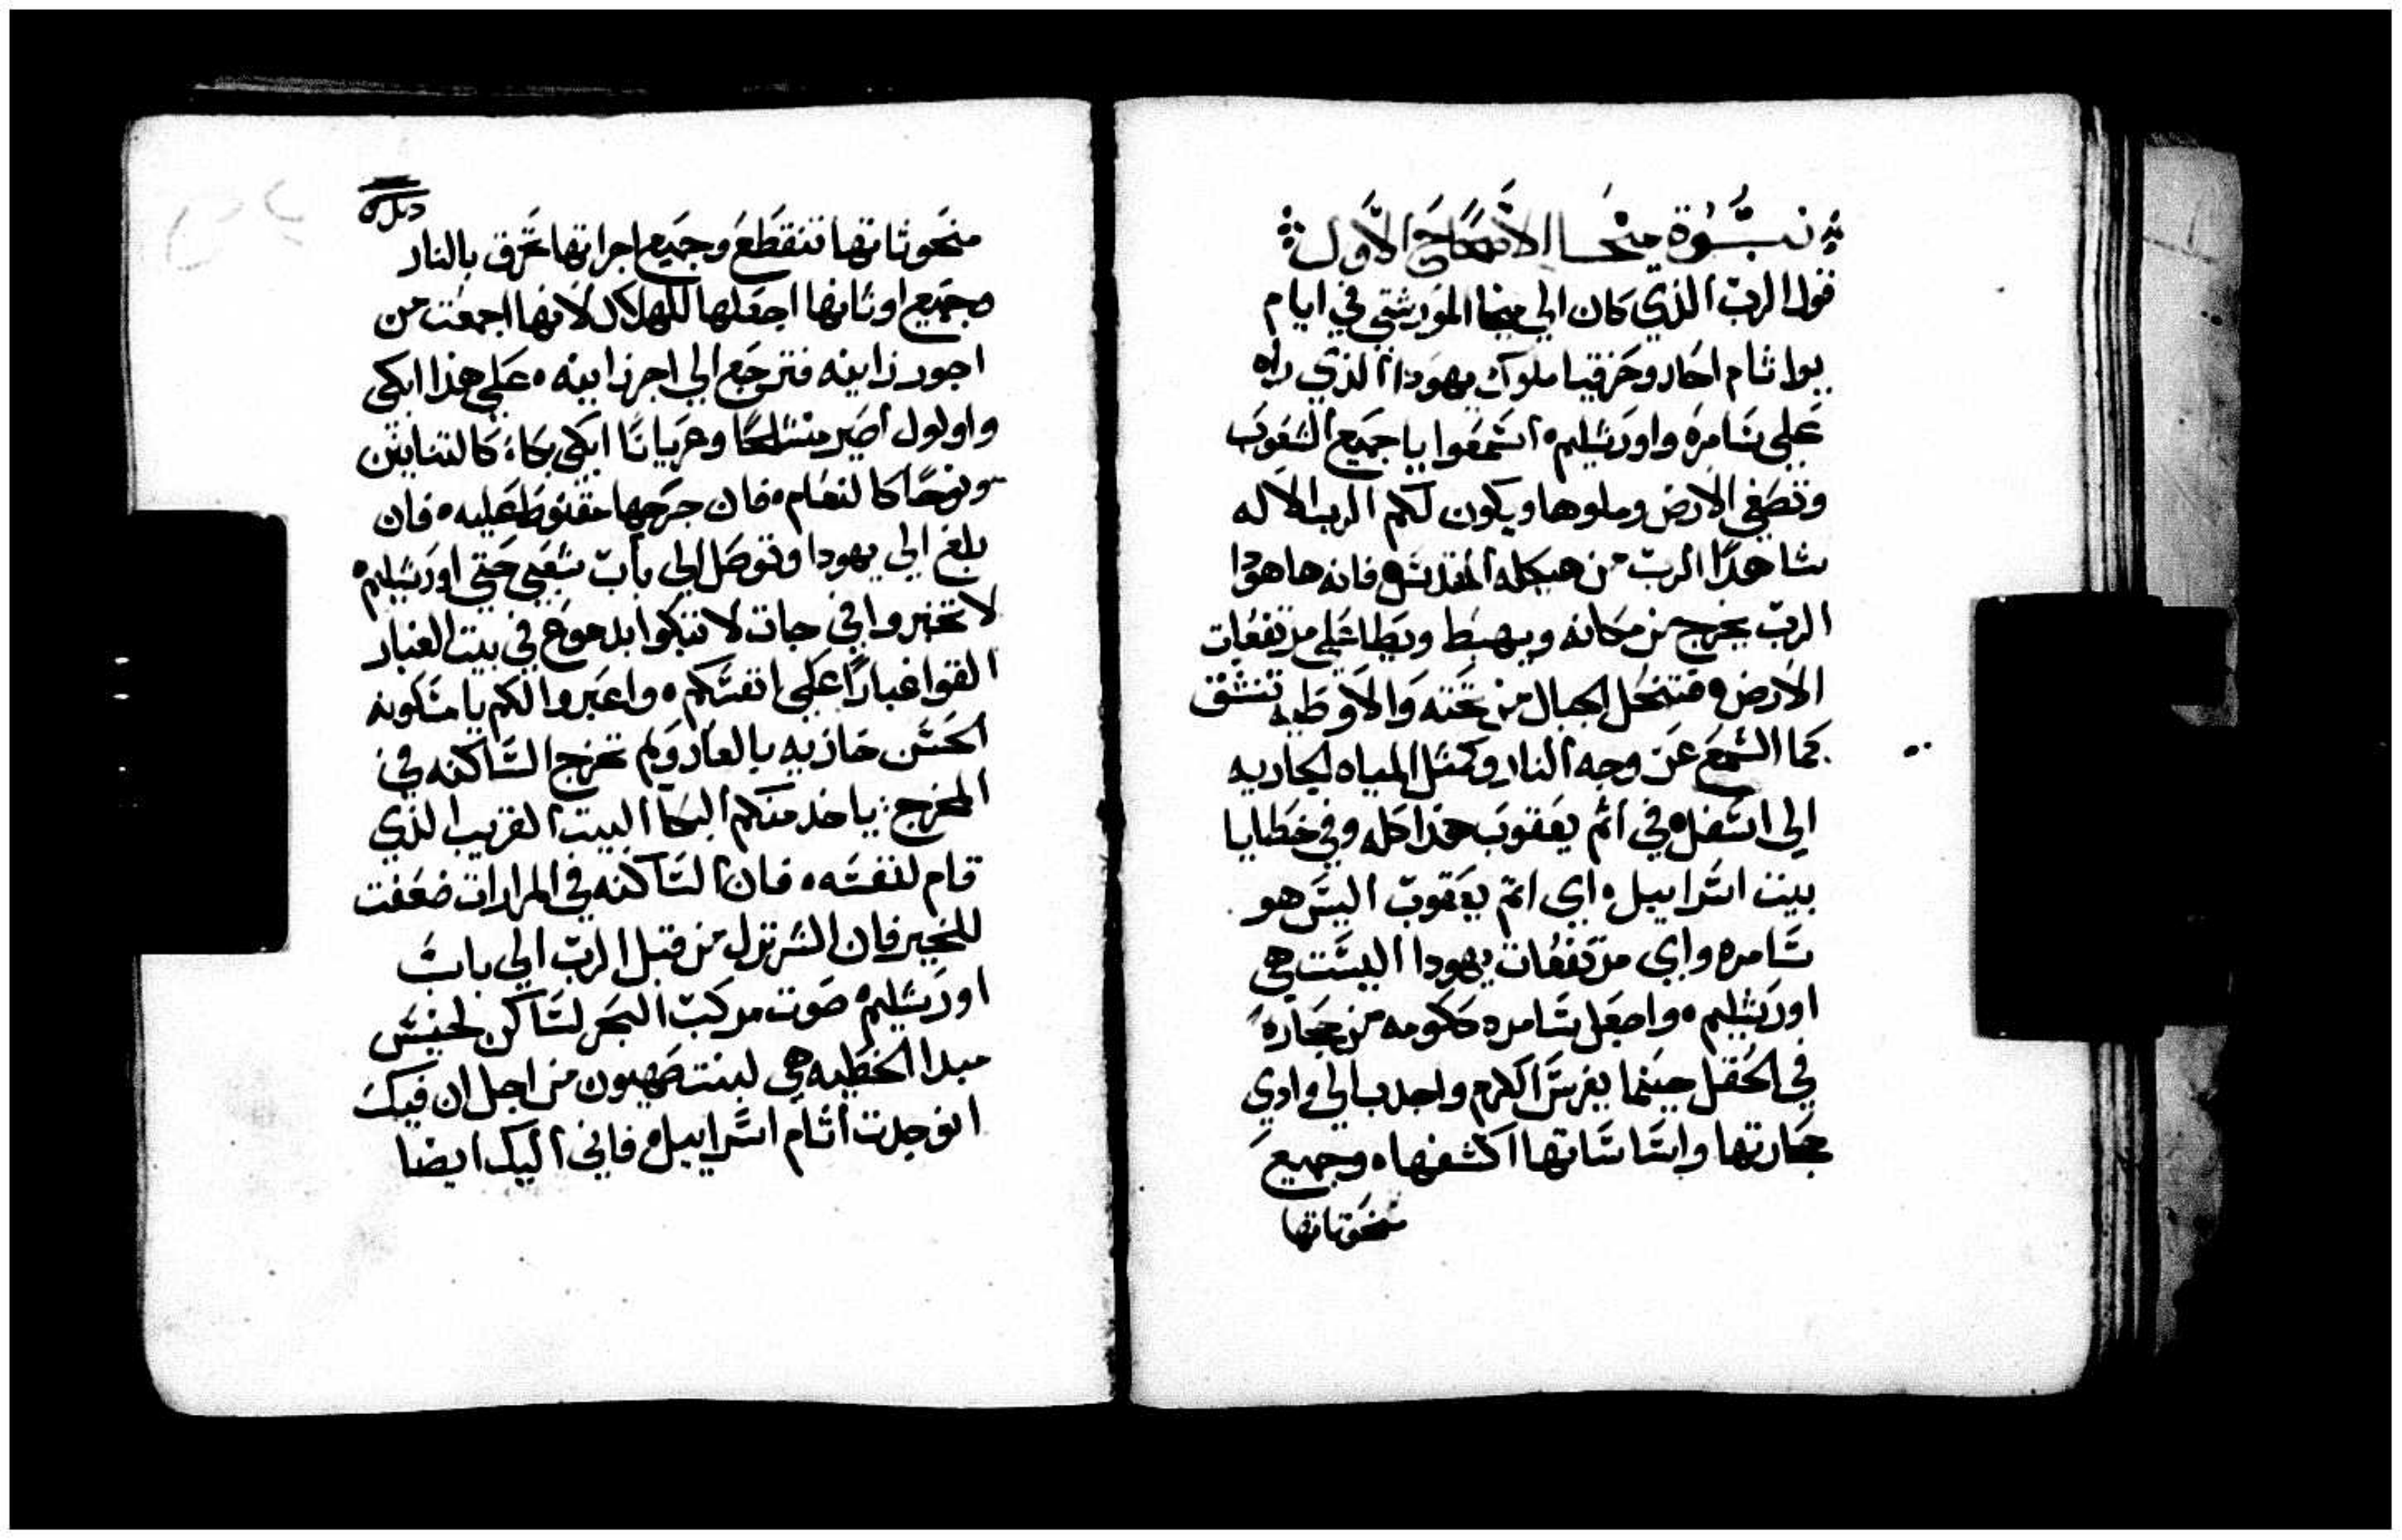 نبوة ميخا الاصحاح الاول
قول الرب الذي كان الي ميخا المورشتي في ايام
يواثام احاز وحزقيا ملوك يهودا الذي راه
علي سامره واورشليم اسمعوا يا جميع الشعوب
وتصغي الارض وملوها ويكون لكم الرب الاله
شاهدا الرب من هيكله المقدس فانه هاهوذا
الرب يخرج من مكانه ويهبط ويطا علي مرتفعات
الارض فتنحل الجبال من تحته والاوطيه تنشق
كما الشمع عن وجه النار وكمثل المياه الجاريه
الي اسفل في اثم يعقوب هذا كله وفي خطايا
بيت اسراييل اي اثم يعقوب اليس هو
سامره واي مرتفعات يهودا اليست هي
اورشليم واجعل سامره ككومه من حجاره
في الحقل حينما يغرس الكرم واجدب الي وادي
حجارتها واساساتها اكشفها وجميع
منحوتاتها
منحوثاتها تتقطع وجميع اجراتها تحرق بالنار
وجميع اوثانها اجعلها للهلاك لانها اجمعت من
اجور زانيه فترجع الي اجر زانيه علي هذا ابكي
واولول اصير منسلحا وعريانا ابكي بكاء كالتنانين
ونوحا كالنعام فان جرحها مقنوط عليه فان
بلغ الي يهودا وتوصل الي باب شعبي حتي اورشليم
لا تخبروا في جات لا تبكوا بدموع في بيت الغبار
القوا غبارا علي انفسكم واعبروا لكم يا مسكونه
الحسن خازيه بالعار ولم تخرج الساكنه في
المخرج ياخذ منكم البكا البيت القريب الذي
قام لنفسه فان الساكنه في المرارات ضعفت
للخير فان الشر نزل من قبل الرب الي باب
اورشليم صوت مركب البحر لساكن لخيس
مبدا الخطيه هي لبنت صهيون من اجل ان فيك
انوجدت اثام اسراييل فاني اليك ايضا